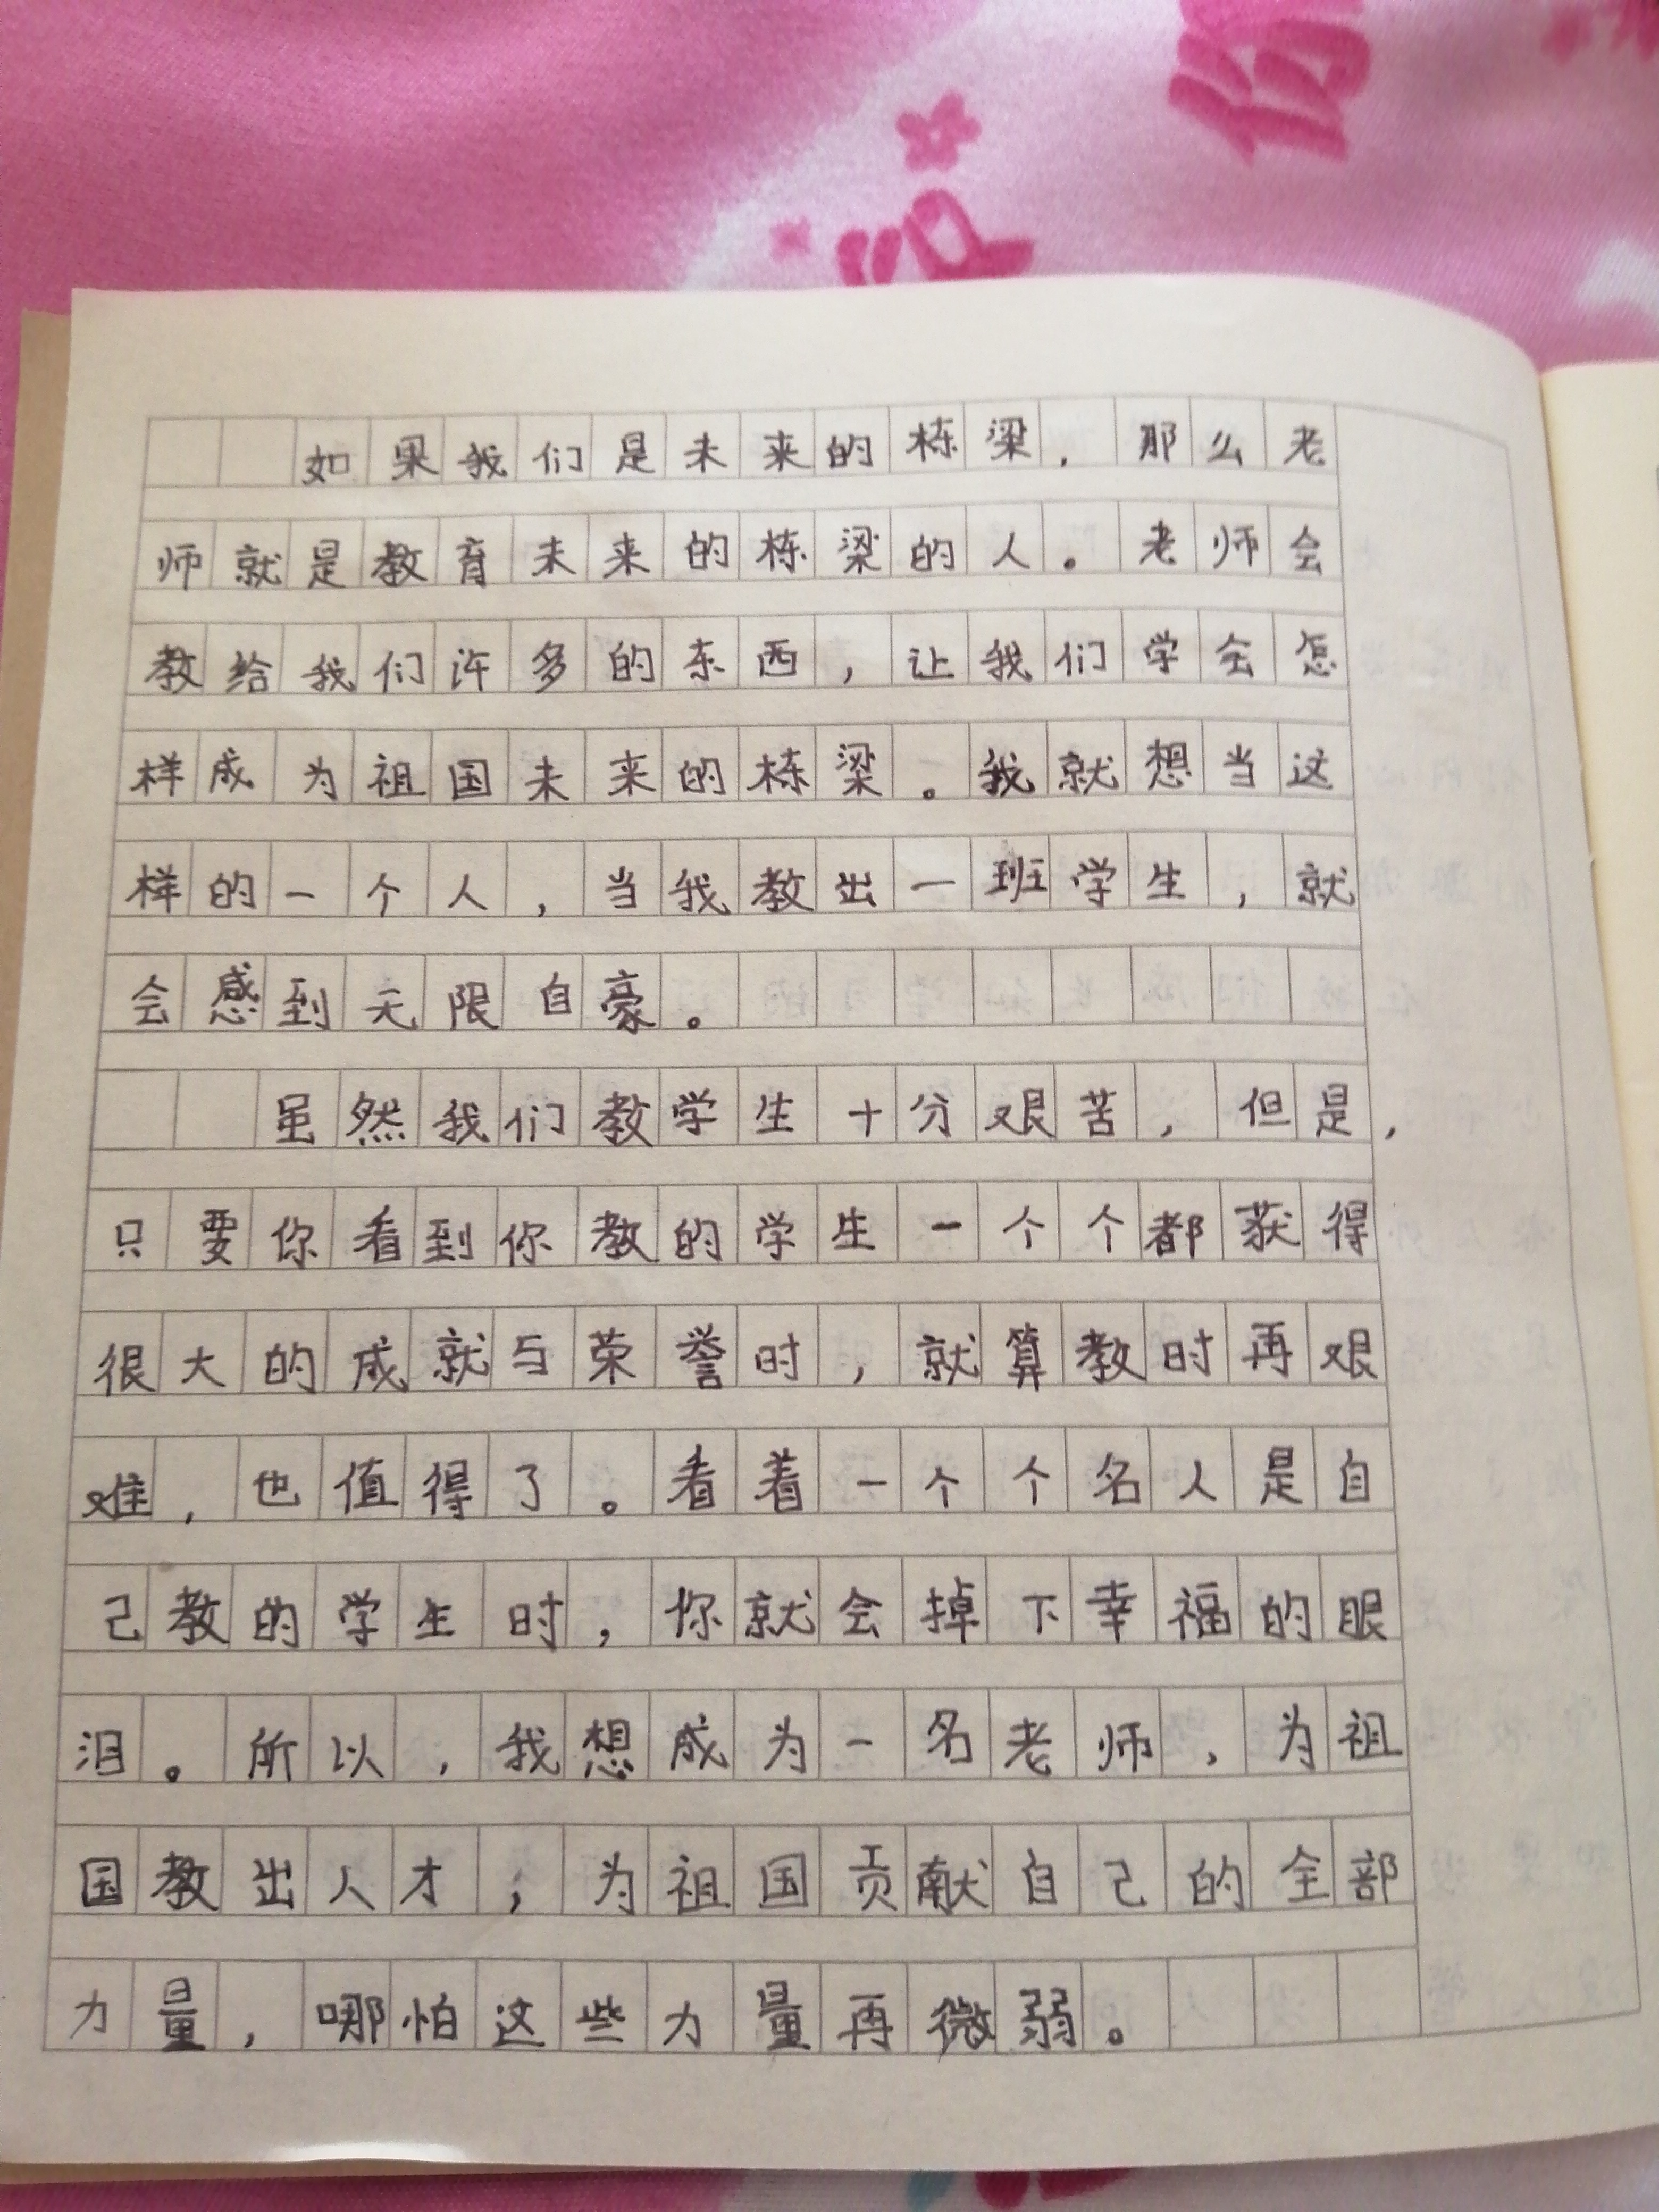 如果我们是未来的栋梁，那么老
师就是教育未来的栋梁的人。老师会
教给我们许多的东西，让我们学会怎
样成为祖国未来的栋梁。我就想当这
样的一个人，当我教出一班学生，就
会感到无限自豪。
虽然我们教学生十分艰苦，但是，
只要你看到你教的学生一个个都获得
很大的成就与荣誉时，就算教时再艰
难，也值得了。看着一个个名人是自
己教的学生时，你就会掉下幸福的眼
泪。所以，我想成为一名老师，为祖
国教出人才，为祖国贡献自己的全部
力量，哪怕这些力量再微弱。